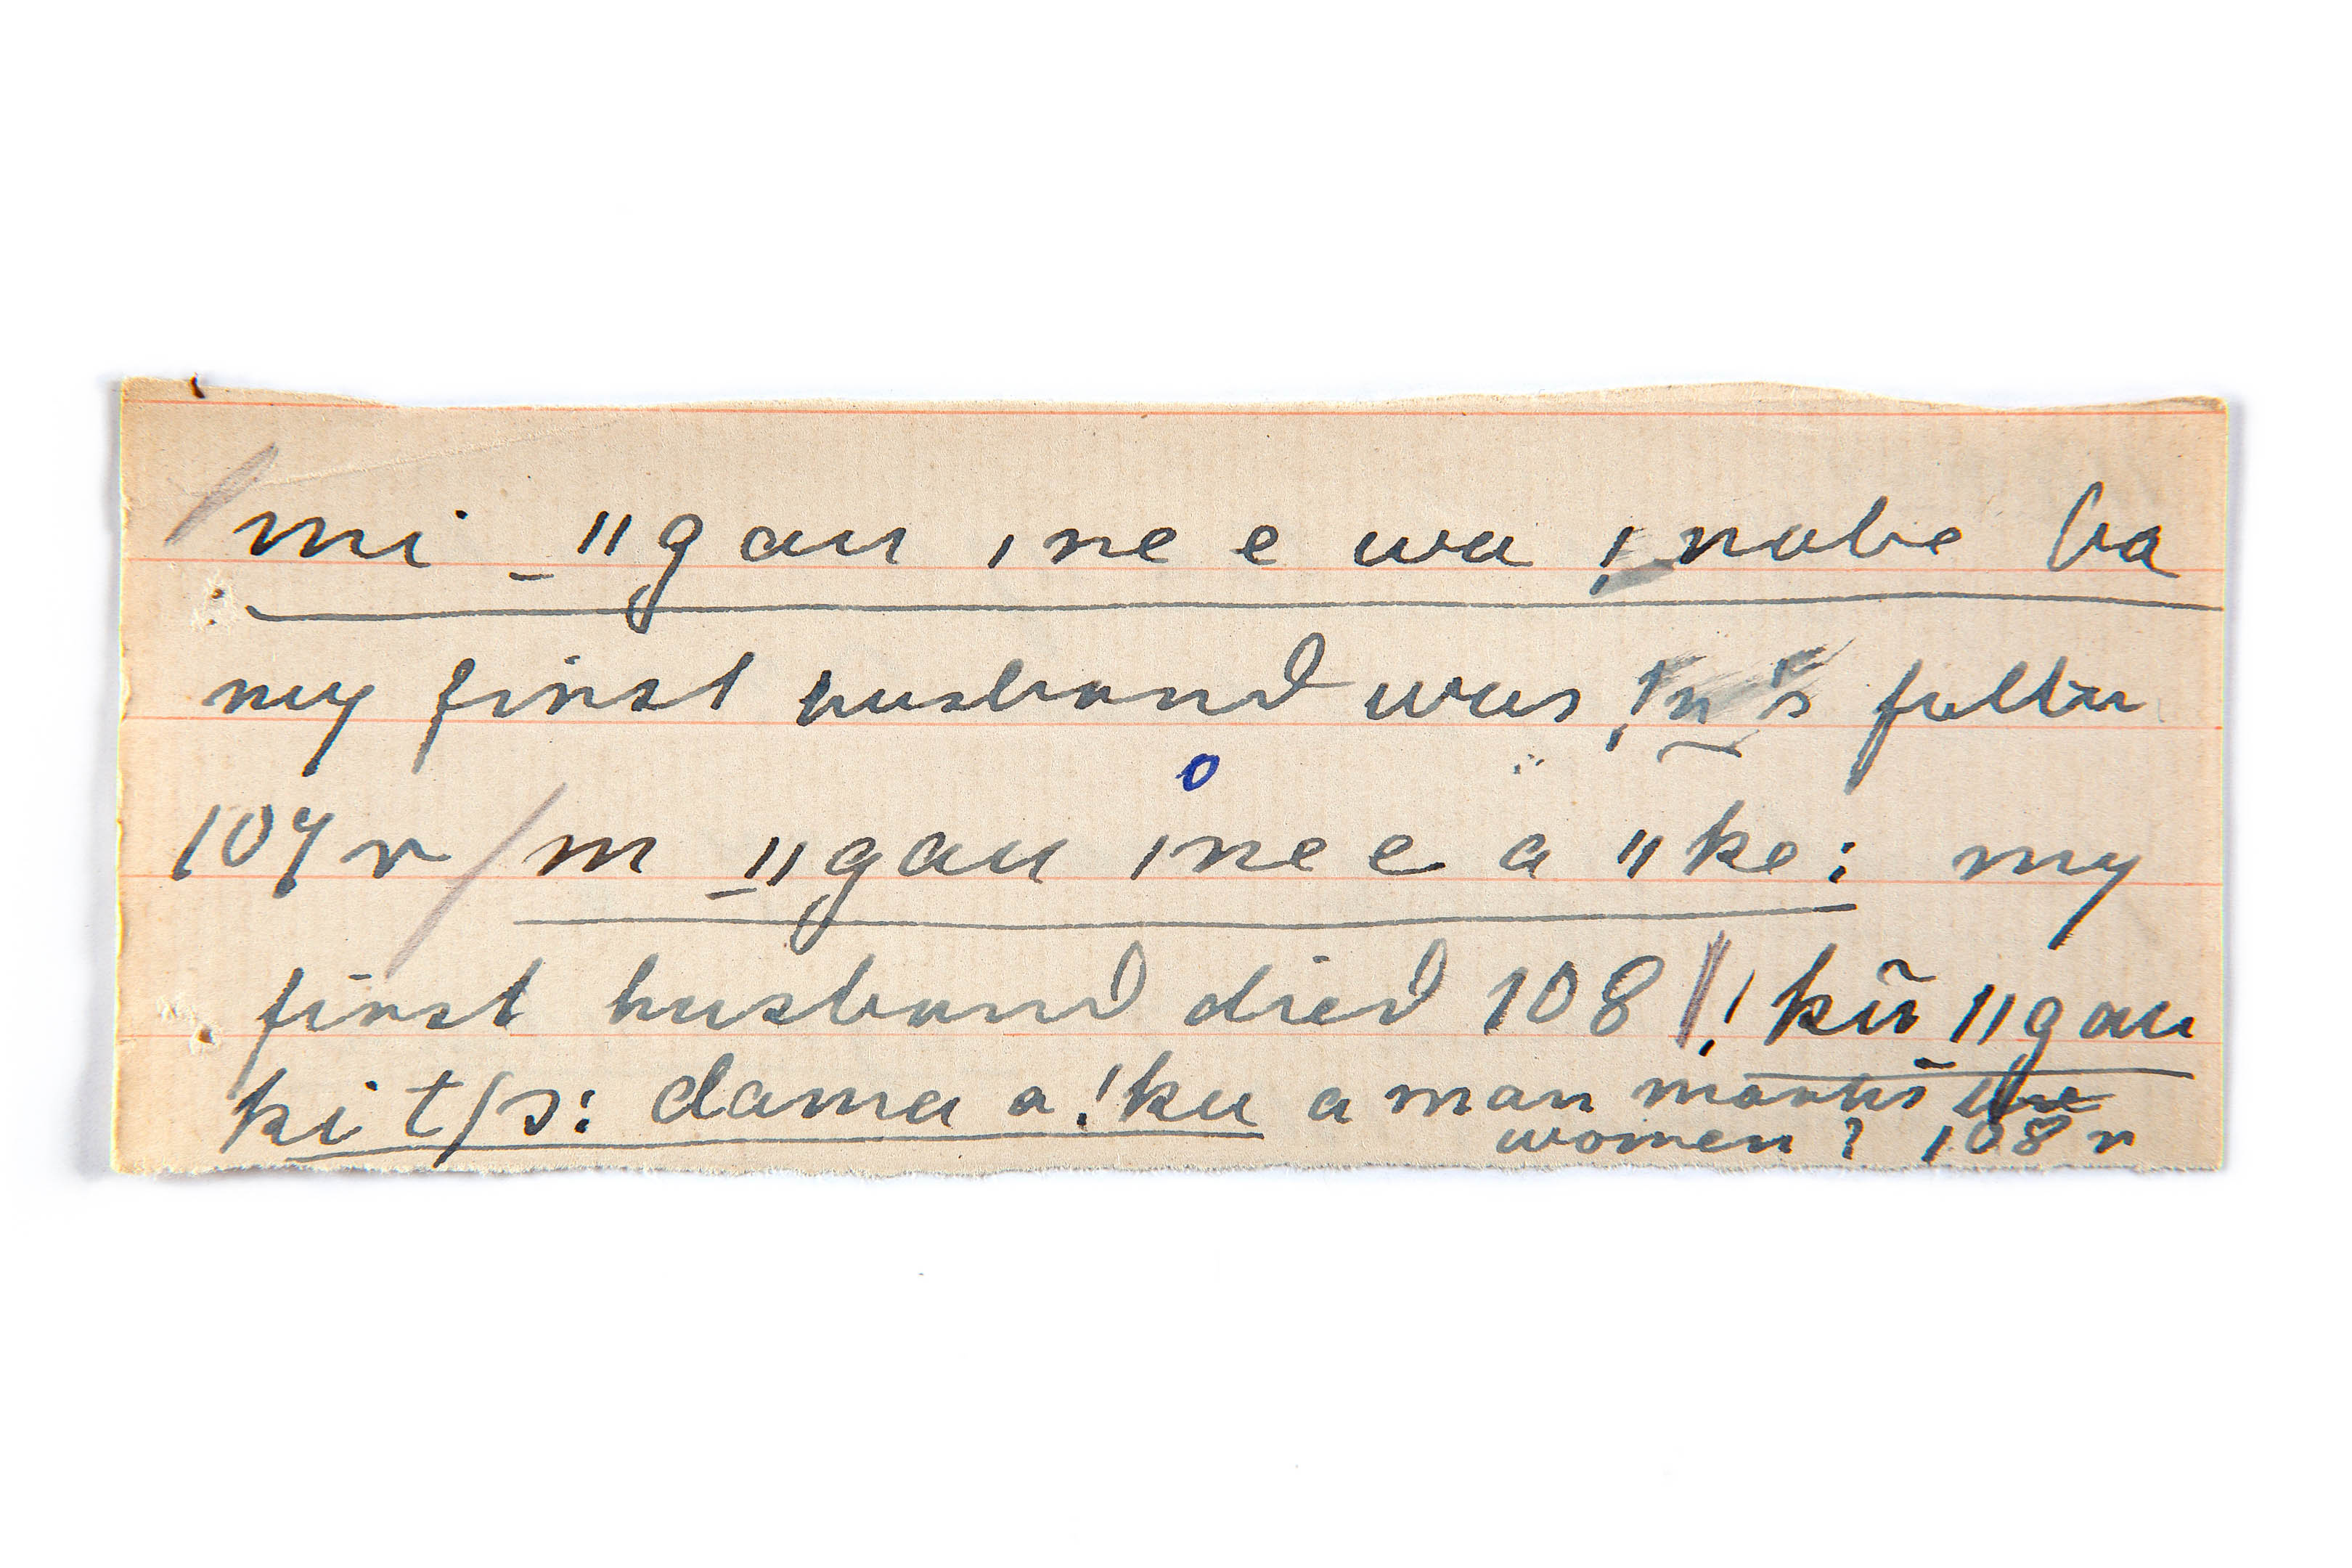 /mi _ǁgau ǀne e wa ǃnabe ba
my first husband was ǃn's father
107 r /m _ǁgau ǀne e a ǁke: my
first husband died 108 // !kũ ǁgau
ki t/s: dama a !ku a man marries
women ? 108 r